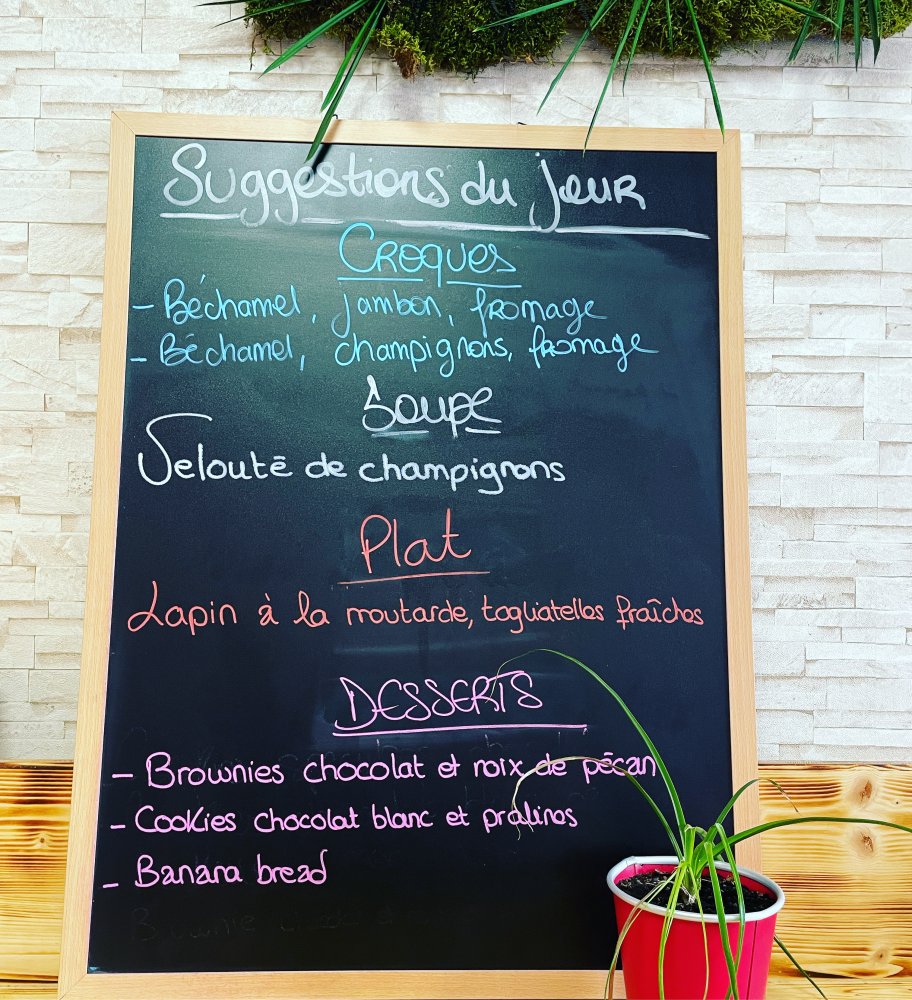 Suggestions du jour
Croques
- Béchamel, jambon, fromage
- Béchamel, champignons, fromage
Soupe
Velouté de champignons
Plat
Lapin à la moutarde, tagliatelles fraîches
DESSERTS
- Brownies chocolat et noix de pécan
- Cookies chocolat blanc et pralines
- Banana bread